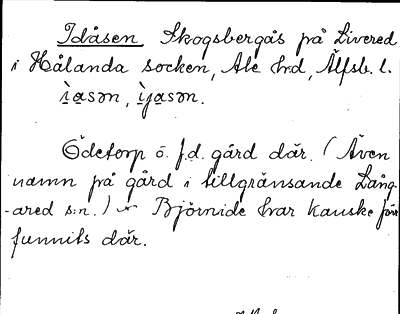 Idåsen Skogsbergås på Livered
i Hålanda socken, Ale hrd, Älfsb. l.
ìasɘn, ìjasɘn.
Ödetorp o. f.d. gård där. (Även
namn på gård i tillgränsande Lång-
-ared s:n.) Björnide har kanske förr
funnits där.